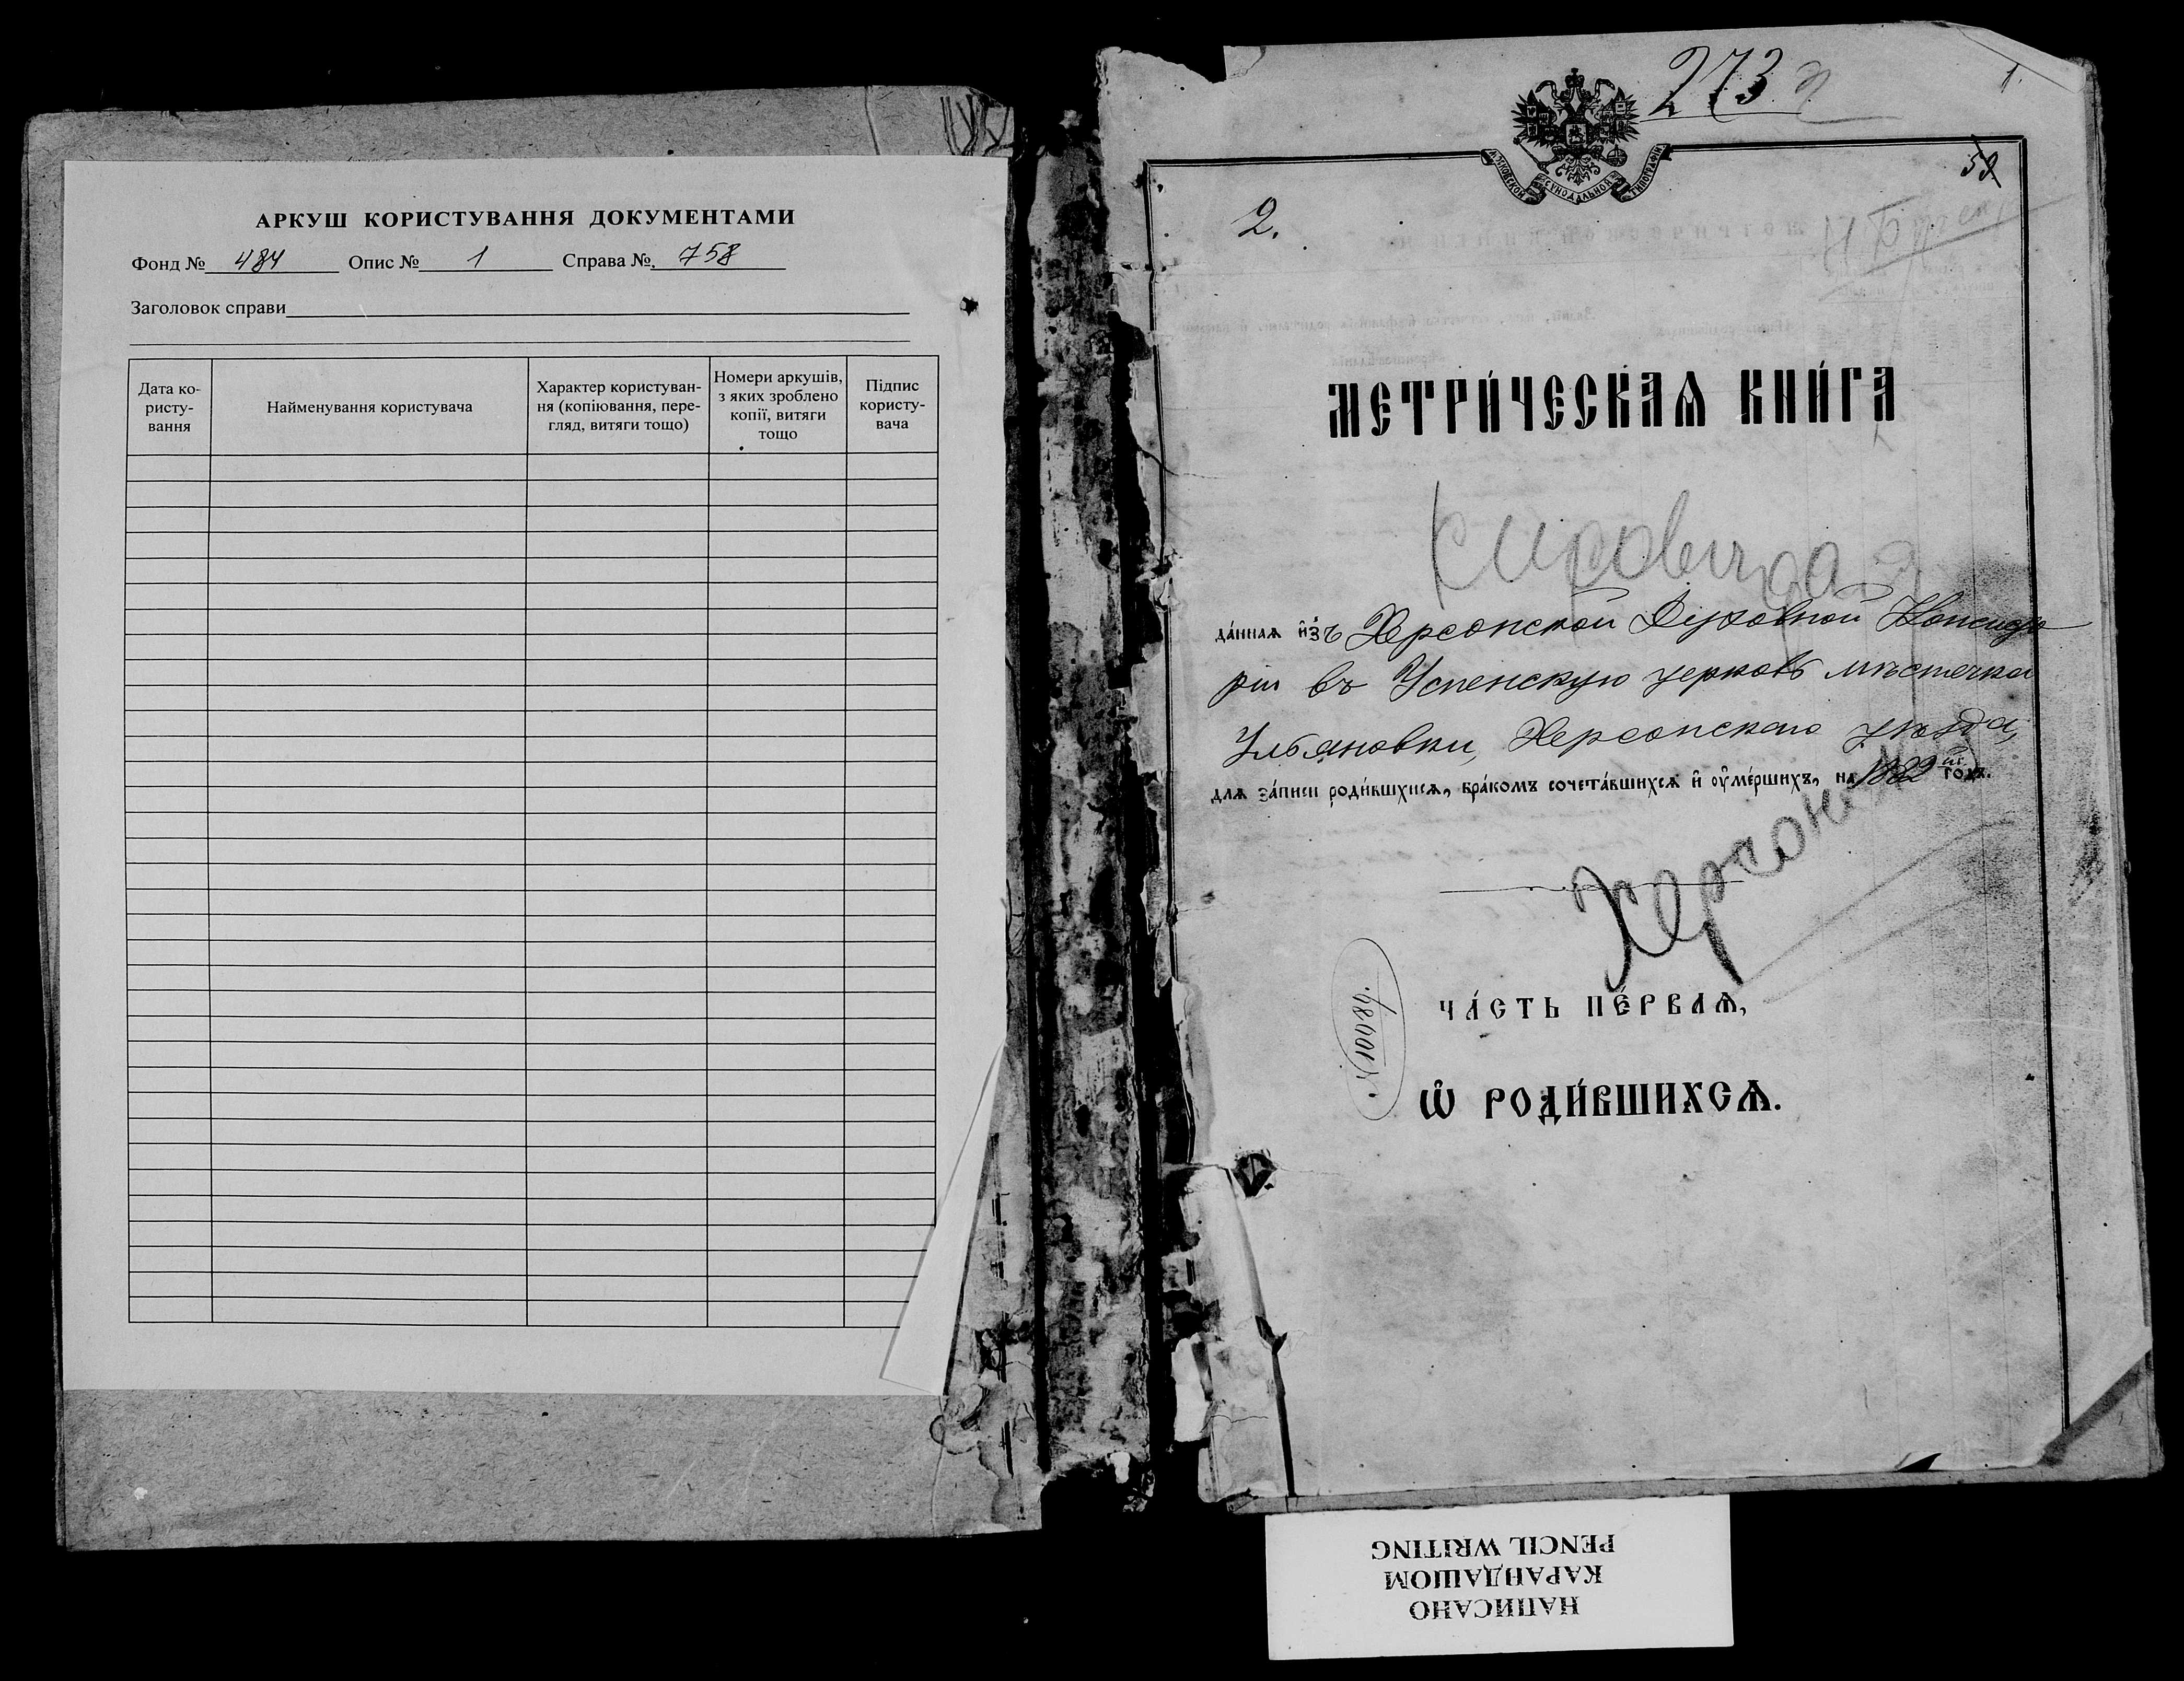 АРКУШ КОРИСТУВАННЯ ДОКУМЕНТАМИ
Фонд № 484 Опис № 1 Справа № 758
Заголовок справи
Дата ко-
ристу-
вання
Найменування користувача
Характер користуван-
ня (копіювання, пере-
гляд, витяги тощо)
Номери аркушів,
з яких зроблено
копії, витяги
тощо
Підпис
користу-
вача
273
1.
59
2.
МОСКОВСКОЙ СѴНОДАЛЬНОЙ ТИПОГРАФІИ
МЕТРИ́ЧЕСКАѦ КНИ́ГА
да́ннаѧ и҆з̾ Херсонской Духовной Консисто
ріи въ Успенскую церковь мѣстечка
Ульяновки, Херсонскаго уѣзда,
длѧ за́писи роди́вшихсѧ, бра́комъ сочета́вшихсѧ и҆ ѹ҆ме́ршихъ, на 1882 й го́дъ.
Херсон
ЧА́СТЬ ПЕ́РВАѦ,
Ѽ РОДИ́ВШИХСѦ.
№10089.
НАПИСАНО
КАРАНДАШОМ
PENCIL WRITING